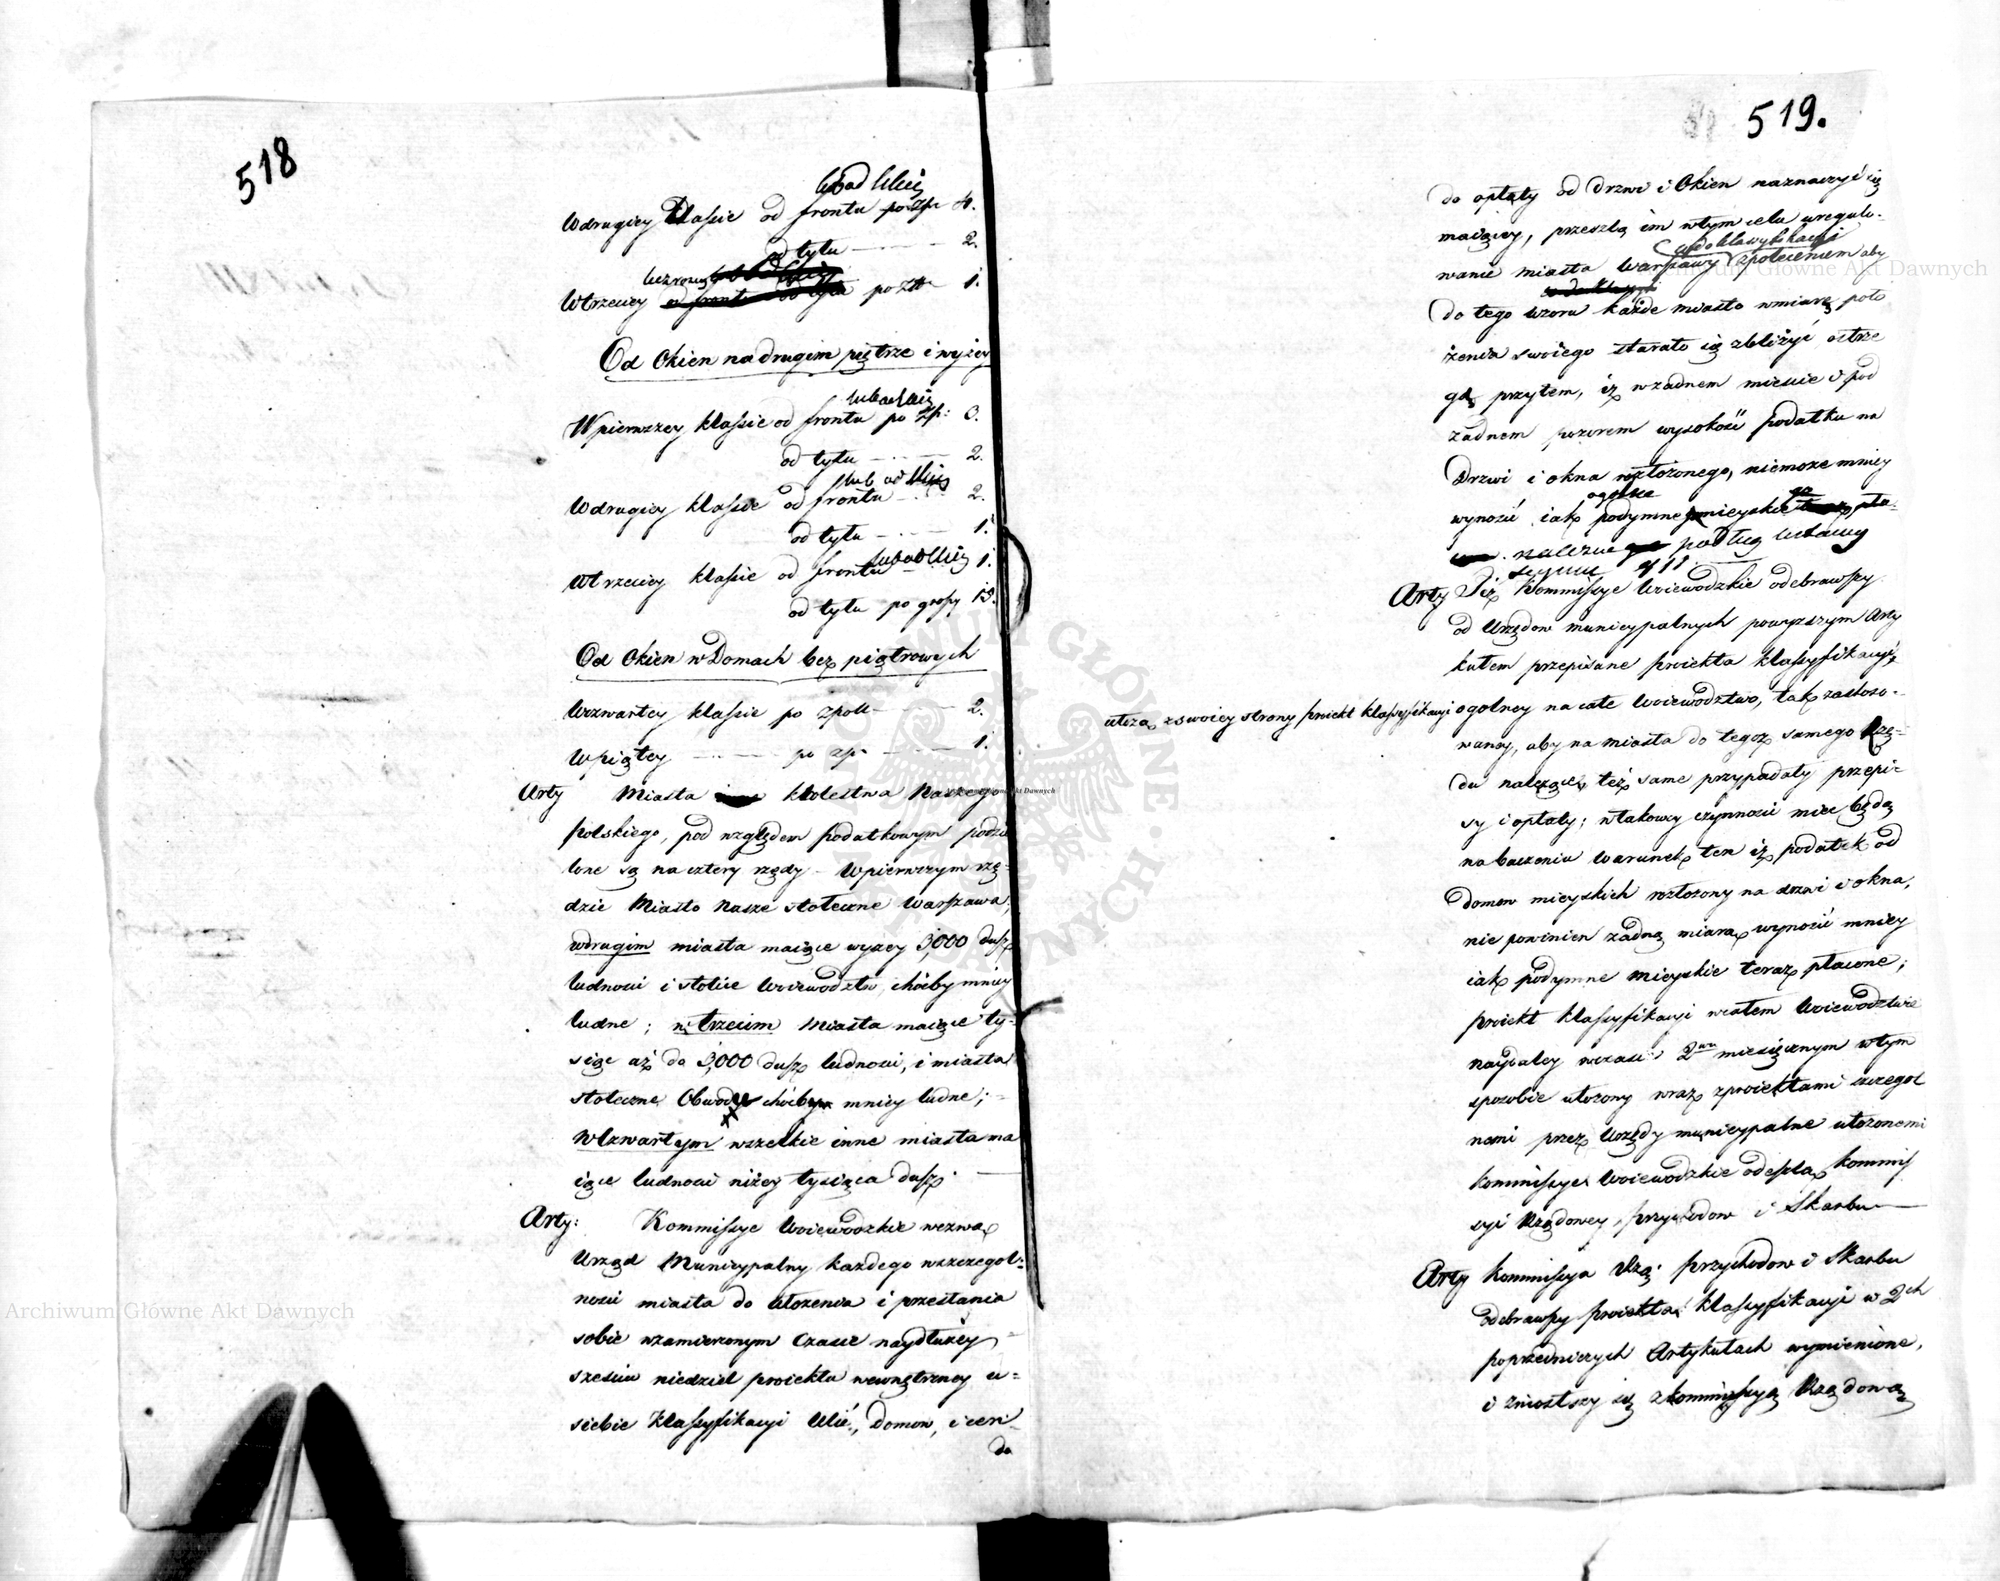 518
lub od Ulicy
W drugiey Klassie od frontu po zp: 4.
od tyłu — 2.
W trzeciey po zł 1.
Od Okien na drugim piętrze i wyżey
lub od Ulicy
W pierwszey klassie od frontu po zp: 3.
od tyłu — 2.
lub od Ulicy
W drugiey klassie od frontu — 2.
od tyłu — 1.
W trzeciey klassie od frontu lub od Ulicy 1.
od tyłu po groszy 15.
Od Okien w Domach bez piątrowych
W czwartey klassie po zpoll — 2.
W piątey — po zp. — 1.
Arty Miasta Królestwa Naszego
Polskiego, pod względem podatkowym podzie
lone są na cztery rzędy. W pierwszym rzę-
dzie Miasto Nasze stołeczne Warszawa,
w drugim miasta maiące wyżey 3,000 dusz
ludności i stolice Woiewództw, choćby mniey
ludne; w trzecim Miasta maiące ty-
siąc aż do 3,000 dusz ludności, i miasta
stołeczne Obwodów choćby mniey ludne;
W czwartym wszelkie inne miasta ma
iące ludności niżey tysiąca dusz. —
Arty: Kommissye Woiewodzkie wezwą
Urząd Municypalny każdego w szczegól-
ności miasta do ułożenia i przesłania
sobie w zamierzonym czasie naydłużey
sześciu niedziel proiektu wewnętrzney u
siebie Klassyfikacyi Ulic, Domow, i cen
do
519.
do opłaty od Drzwi i Okien naznaczyć się
maiącey, przeszlą im w tym celu uregulo-
wanie miasta Warszawy z poleceniem aby
do tego wzoru każde miasto w miarę poło
żenia swoiego starało się zbliżyć, ostrze
gą przytem, iż w żadnem mieście i pod
żadnem pozorem wysokość podatku na
Drzwi i okna rozłożonego, niemoże mniey
ogólne
wynosić iak podymne mieyskie
należne podług ustawy
Seymu
Arty Iż Kommissye Woiewodzkie odebrawszy
od Urzędow municypalnych powyższym Arty
kułem przepisane proiekta klassyfikacyi,
ułożą z swoiey strony proiekt klassyfikacyi ogolney na całe Woiewództwo, tak zastoso-
waney, aby na miasta do tegoż samego Rzę-
du należące, też same przypadały przepi-
sy i opłaty; w takowey czynności mieć będą
na baczeniu warunek ten iż podatek od
domow mieyskich rozłożony na drzwi i okna,
nie powinien żadną miarą wynosić mniey
iak podymne mieyskie teraz płacone;
proiekt klassyfikacyi w całem Woiewództwie
naydaley w czasie 2 miesięcznym w tym
sposobie ułożony wraz z proiektami szczegól
nemi przez Urzędy municypalne ułożonemi
kommissye Woiewodzkie odeszlą Kommis
syi Rządowey przychodow i Skarbu —
Arty Kommissya Rzą: przychodow i Skarbu
odebrawszy proiekta klassyfikacyi w 2ch
poprzedniczych Artykułach wymienione,
i zniosłszy się z kommissyą Rządową
Archiwum Główne Akt Dawnych